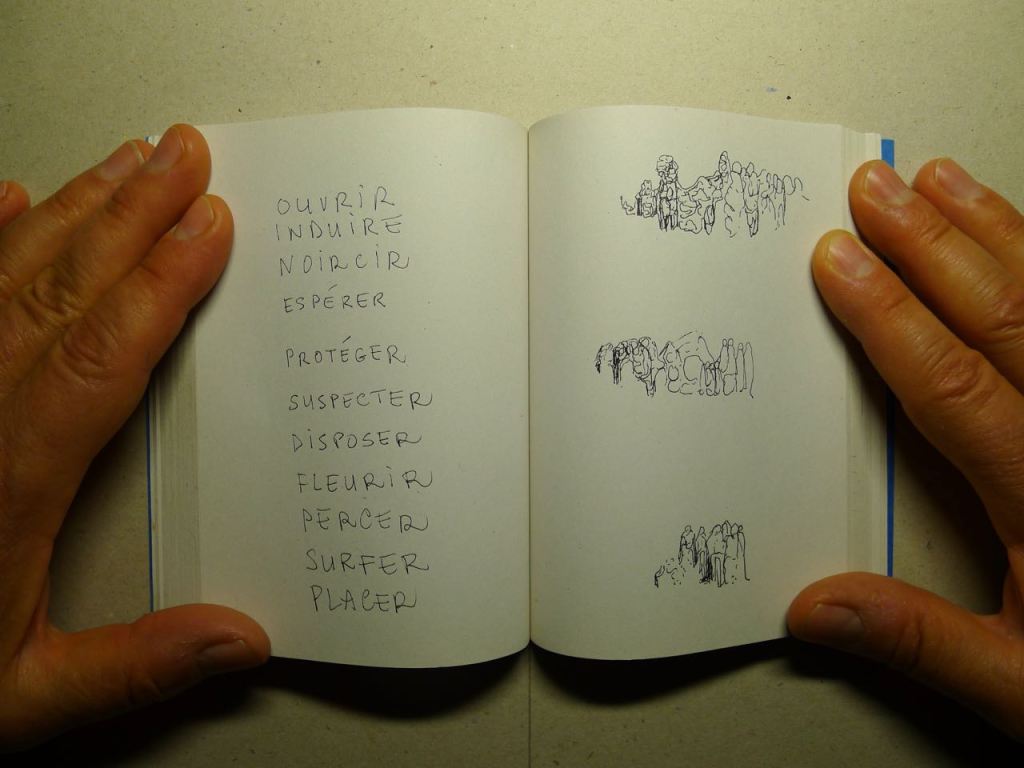 OUVRIR
INDUIRE
NOIRCIR
ESPÉRER
PROTÉGER
SUSPECTER
DISPOSER
FLEURIR
PERCER
SURFER
PLACER